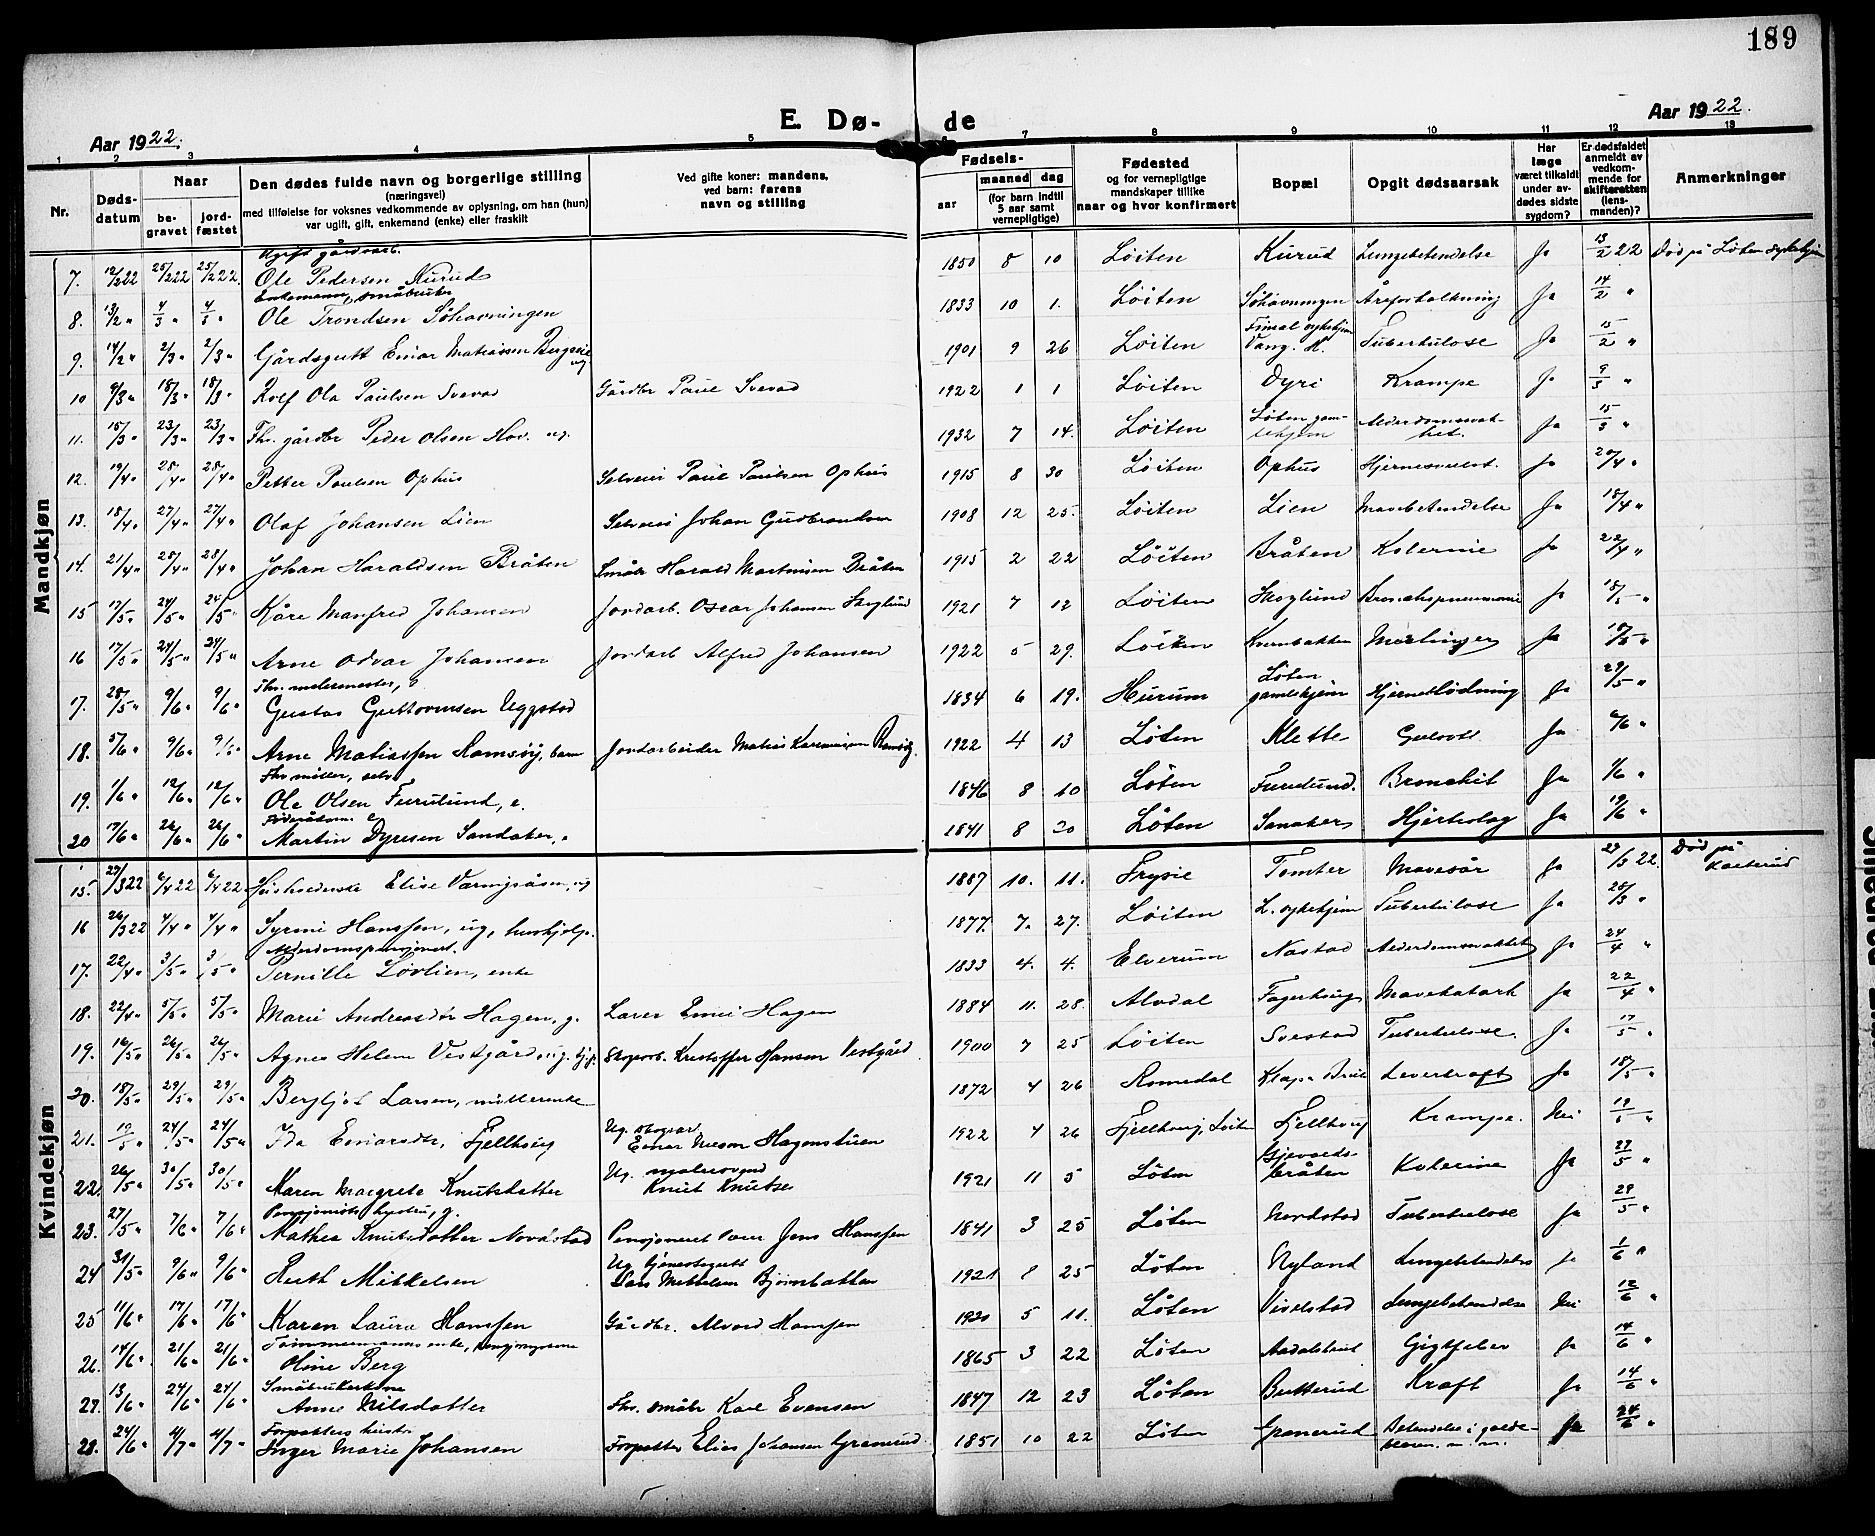 189
Aar 1922.
E. Dø- de
Aar 1922.
1 2 3 4 5 7 8 9 10 11 12 13
Nr.
Døds-
datum
Naar
be-
gravet
jord-
fæstet
Den dødes fulde navn og borgerlige stilling
(næringsvei)
med tilføielse for voksnes vedkommende av oplysning, om han (hun)
var ugift, gift, enkemand (enke) eller fraskilt
Ved gifte koner: mandens,
ved barn: farens
navn og stilling
Fødsels-
aar
maaned dag
(for barn indtil
5 aar samt
vernepligtige)
Fødested
og for vernepligtige
mandskaper tillike
naar og hvor konfirmert
Bopæl
Opgit dødsaarsak
Har
læge
været tilkaldt
under av-
dødes sidste
sygdom?
Er dødsfaldet
anmeldt av
vedkom-
mende for
skifteretten
(lens-
manden)?
Anmerkninger
Mandkjøn
Ugift gårdarb.
7. 12/2 22 25/2 22 25/2 22. Ole Pedersen Kurud 1850 8 10 Løiten Kurud Lungebetendelse Ja 13/2 22 Død på Løten sykehjem
Enkemann, småbruker
8. 13/2 " 4/3 " 4/3 " Ole Trondsen Søhavningen 1833 10 1. Løiten Søhavningen Åreforkalkning Ja 14/2 "
9. 14/2 " 2/3 " 2/3 " Gårdsgutt Einar Matiassen 1901 9 26 Løiten Vang. H. Tuberkulose Ja 15/2 "
10 9/3 " 18/3 " 18/3 " Rolf Ola Paulsen Svevad Gårdbr Paul Svevad 1922 1 1 Løiten Dyri Krampe Ja 9/3 "
11. 15/3 " 23/3 " 23/3 " Fhv. gårdbr Peder Olsen Hov. ug. 1932 7 14. Løiten Løten gam-
lehjem Alderdomssvak-
het. Ja 15/3 "
12. 19/4 " 28/4 " 28/4 " Petter Paulsen Ophus Selveier Paul Paulsen Ophus 1915 8 30 Løiten Ophus Hjernesvulst. Ja 20/4 "
13. 18/4 " 27/4 " 27/4 " Olaf Johansen Lien Selveier Johan Gudbrandsen 1908 12 25. Løiten Lien Mavebetendelse Ja 18/4 "
14. 21/4 " 28/4 " 28/4 " Johan Haraldsen Bråten Småbr Harald Martinsen Bråten 1915 2 22 Løiten Bråten Kolerine Ja 22/4 "
15 17/5 " 24/5 " 24/5 " Kåre Manfred Johansen Jordarb. Oscar Johansen Skoglund 1921 7 12 Løiten Skoglund Bronchopneumonie Ja 18/5 "
16 17/5 " 24/5 " 24/5 " Arne Odvar Johansen Jordarb Alfred Johansen 1922 5 29. Løiten Kvernbakken Meslinger Ja 18/5 "
Fhv. malermester,
17. 28/5 " 9/6 " 9/6 " Gustav Guttormsen Uggstad 1834 6 19. Hurum Løten
gamlehjem Hjerneblødning Ja 29/5 "
18. 5/6 " 9/6 " 9/6 " Arne Matiassen Ramsøy, barn Jordarbeider Matias Ramsøy 1922 4 13 Løten Klette Gulsott Ja 6/6 "
Fhv møller,
19. 1/6 " 12/6 " 12/6 " Ole Olsen Furulund, e. 1846 8 10 Løten Furulund. Bronchit Ja 1/6 "
Føderådsm. e
20 17/6 " 26/6 " 26/6 " Martin Dyresen Sandaker, " 1841 8 20 Løten Sanaker Hjerteslag Ja 19/6 "
Kvindekjøn
15. 29/3 22 6/4 22 6/4 22 Husholderske Elise, ug 1887 10. 11. Trysil Tomter Mavesår Ja 29/3 22. Død på
Kasterud
16 26/3 22 4/4 " 4/4 " Syrine Hanssen, ug, hushjelp. 1877. 7. 27. Løiten L. sykehjem Tuberkulose Ja 28/3 "
Alderdomspensjonert.
17. 22/4 " 3/5 " 3/5 " Pernille Løvlien, enke 1833 4. 4. Elverum Nastad Alderdomssvakhet Ja 24/4 "
18. 22/4 " 5/5 " 5/5 " Marie Andreasdtr Hagen, g. Lærer Hagen 1884 11. 28. Alvdal Fagerhaug Mavekatarh Ja 22/4 "
19. 16/5 " 26/5 " 26/5 " Agnes Helene Vestgård ug. Skogarb. Kristoffer Hansen Vestgård 1900 7 25 Løiten Svestad Tuberkulose. Ja 17/5 "
20. 18/5 " 29/5 " 29/5 " Bergljot Larsen, møllerenke 1872 4 26 Romedal Klæpa Bruk Leverkraft Ja 18/5 "
21. 19/5 " 24/5 " 24/5 " Ida Einarsdtr, Fjellhaug Ug. skogsarb
Einar Hagenstuen 1922 4 26 Fjellhaug, Løiten Fjellhaug Krampe. Nei 19/5 "
22. 26/5 " 30/5 " 30/5 " Maren Margrete Knutsdatter Ug. malersvend
Knut Knutsen 1921 11 5 Løten bråten Kolerine Ja 27/5 "
Pensjonists hustru, g.
23. 27/5 " 7/6 " 7/6 " Mathea Knutsdatter Nordstad Pensjoneret Jens Hanssen 1841 3 25 Løten Nordstad Tuberkulose Ja 29/5 "
24 31/5 " 9/6 " 9/6 " Ruth Mikkelsen Ug. tjenestegutt
Lars Mikkelsen Bjørnbakken 1921 8 25 Løten Nyland Lungebetendelse Ja 1/6 "
25 11/6 " 17/6 " 17/6 " Karen Laura Hanssen Gårdbr. Hanssen 1920 5 11. Løten Vivelstad Lungebetendelse Nei 12/6 "
Tømmermanns enke,
26. 14/6 " 21/6 " 21/6 " Oline Berg 1865 3 22 Løten Gigtfeber Ja 14/6 "
Småbrukerkone
27. 13/6 " 24/6 " 24/6 " Anne Nilsdatter Fhv. småbr Karl Evensen 1847 12 23 Løten Butterud Kræft Ja 14/6 "
Forpakters hustr.
28. 24/6 " 4/7 " 4/7 " Inger Marie Johansen Forpakter Elias Johansen Granerud 1851 10 22 Løten Granerud Betendelse i galde-
blæren m. m. Ja 24/6 "